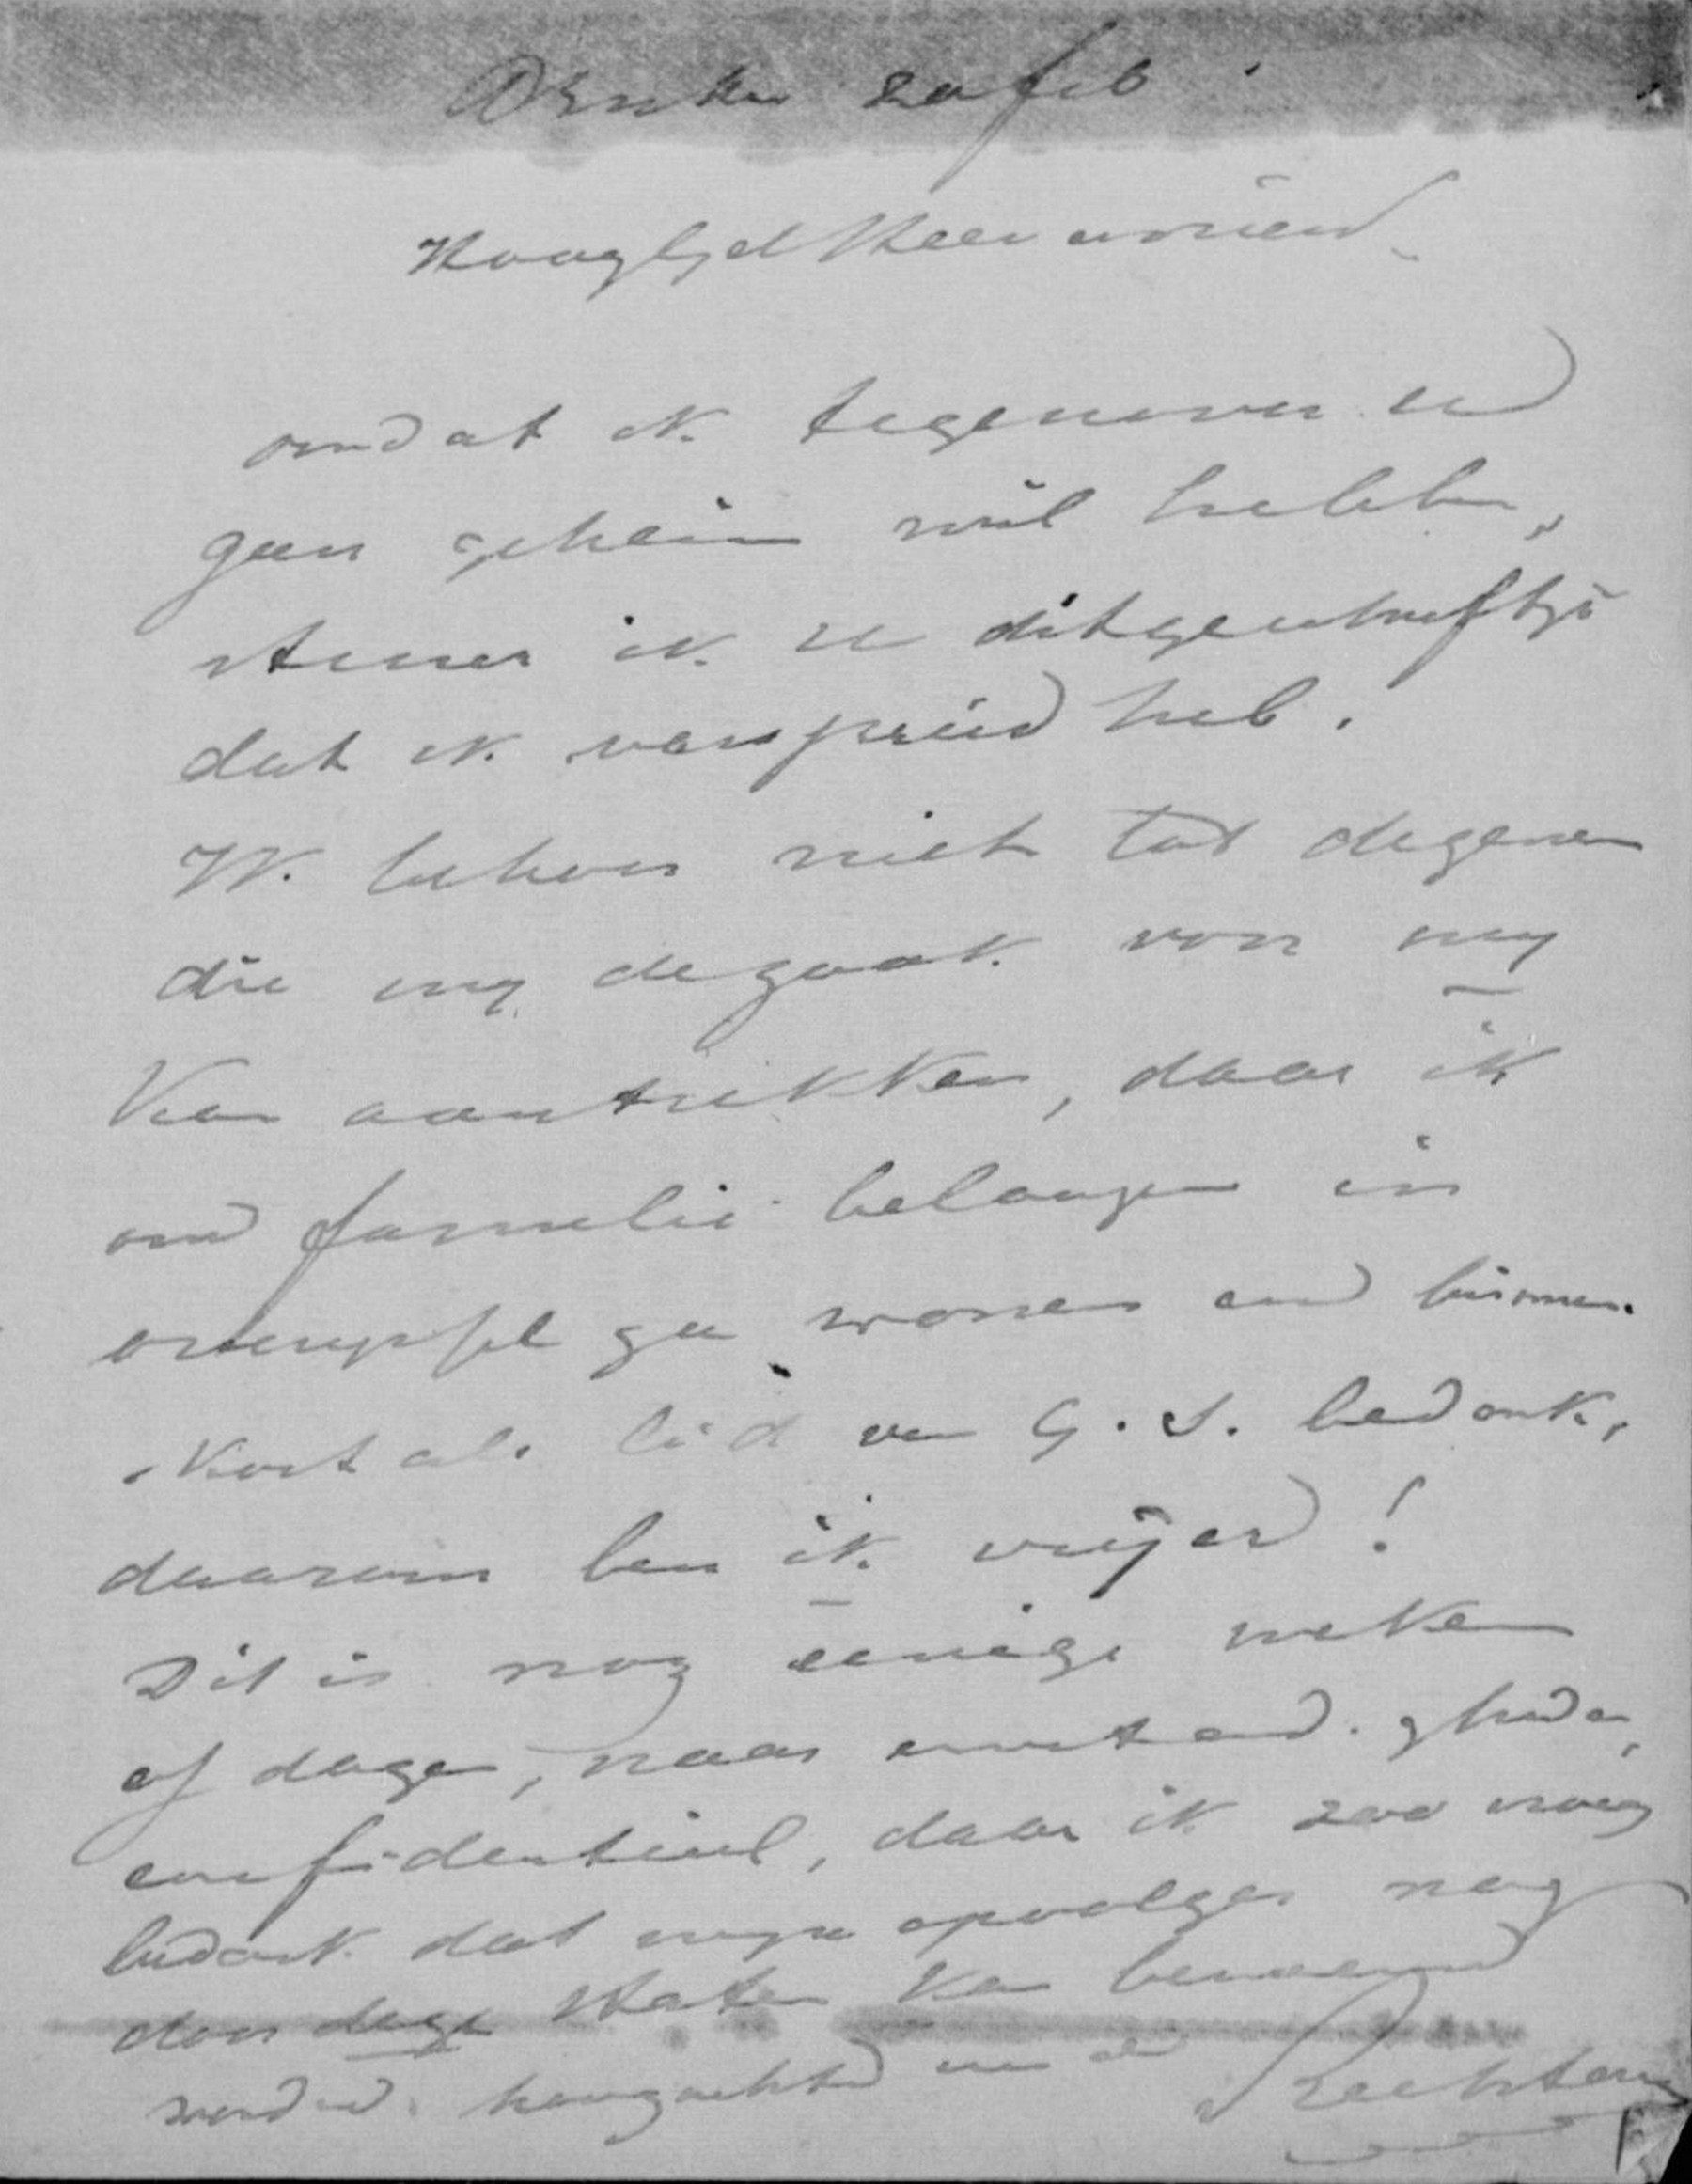 20 feb
omdat ik tegenover u
geen geheim wil hebben,
ik u dit geschriftje
dat ik verspreid heb.
Ik behoor niet tot degenen
die mij de zaak van mij
kan aantrekken, daar ik
om familie belangen in
overijssel ga wonen en binnen
kort als lid van G. S. bedank,
daarom ben ik vrijer!
Dit is nog eenige weken
of dagen, naar omstand. gheden,
confidentieel, daar ik zoo vroeg
bedank dat mijn opvolger nog
door deze Staten kan benoemd
worden. hoogachtend